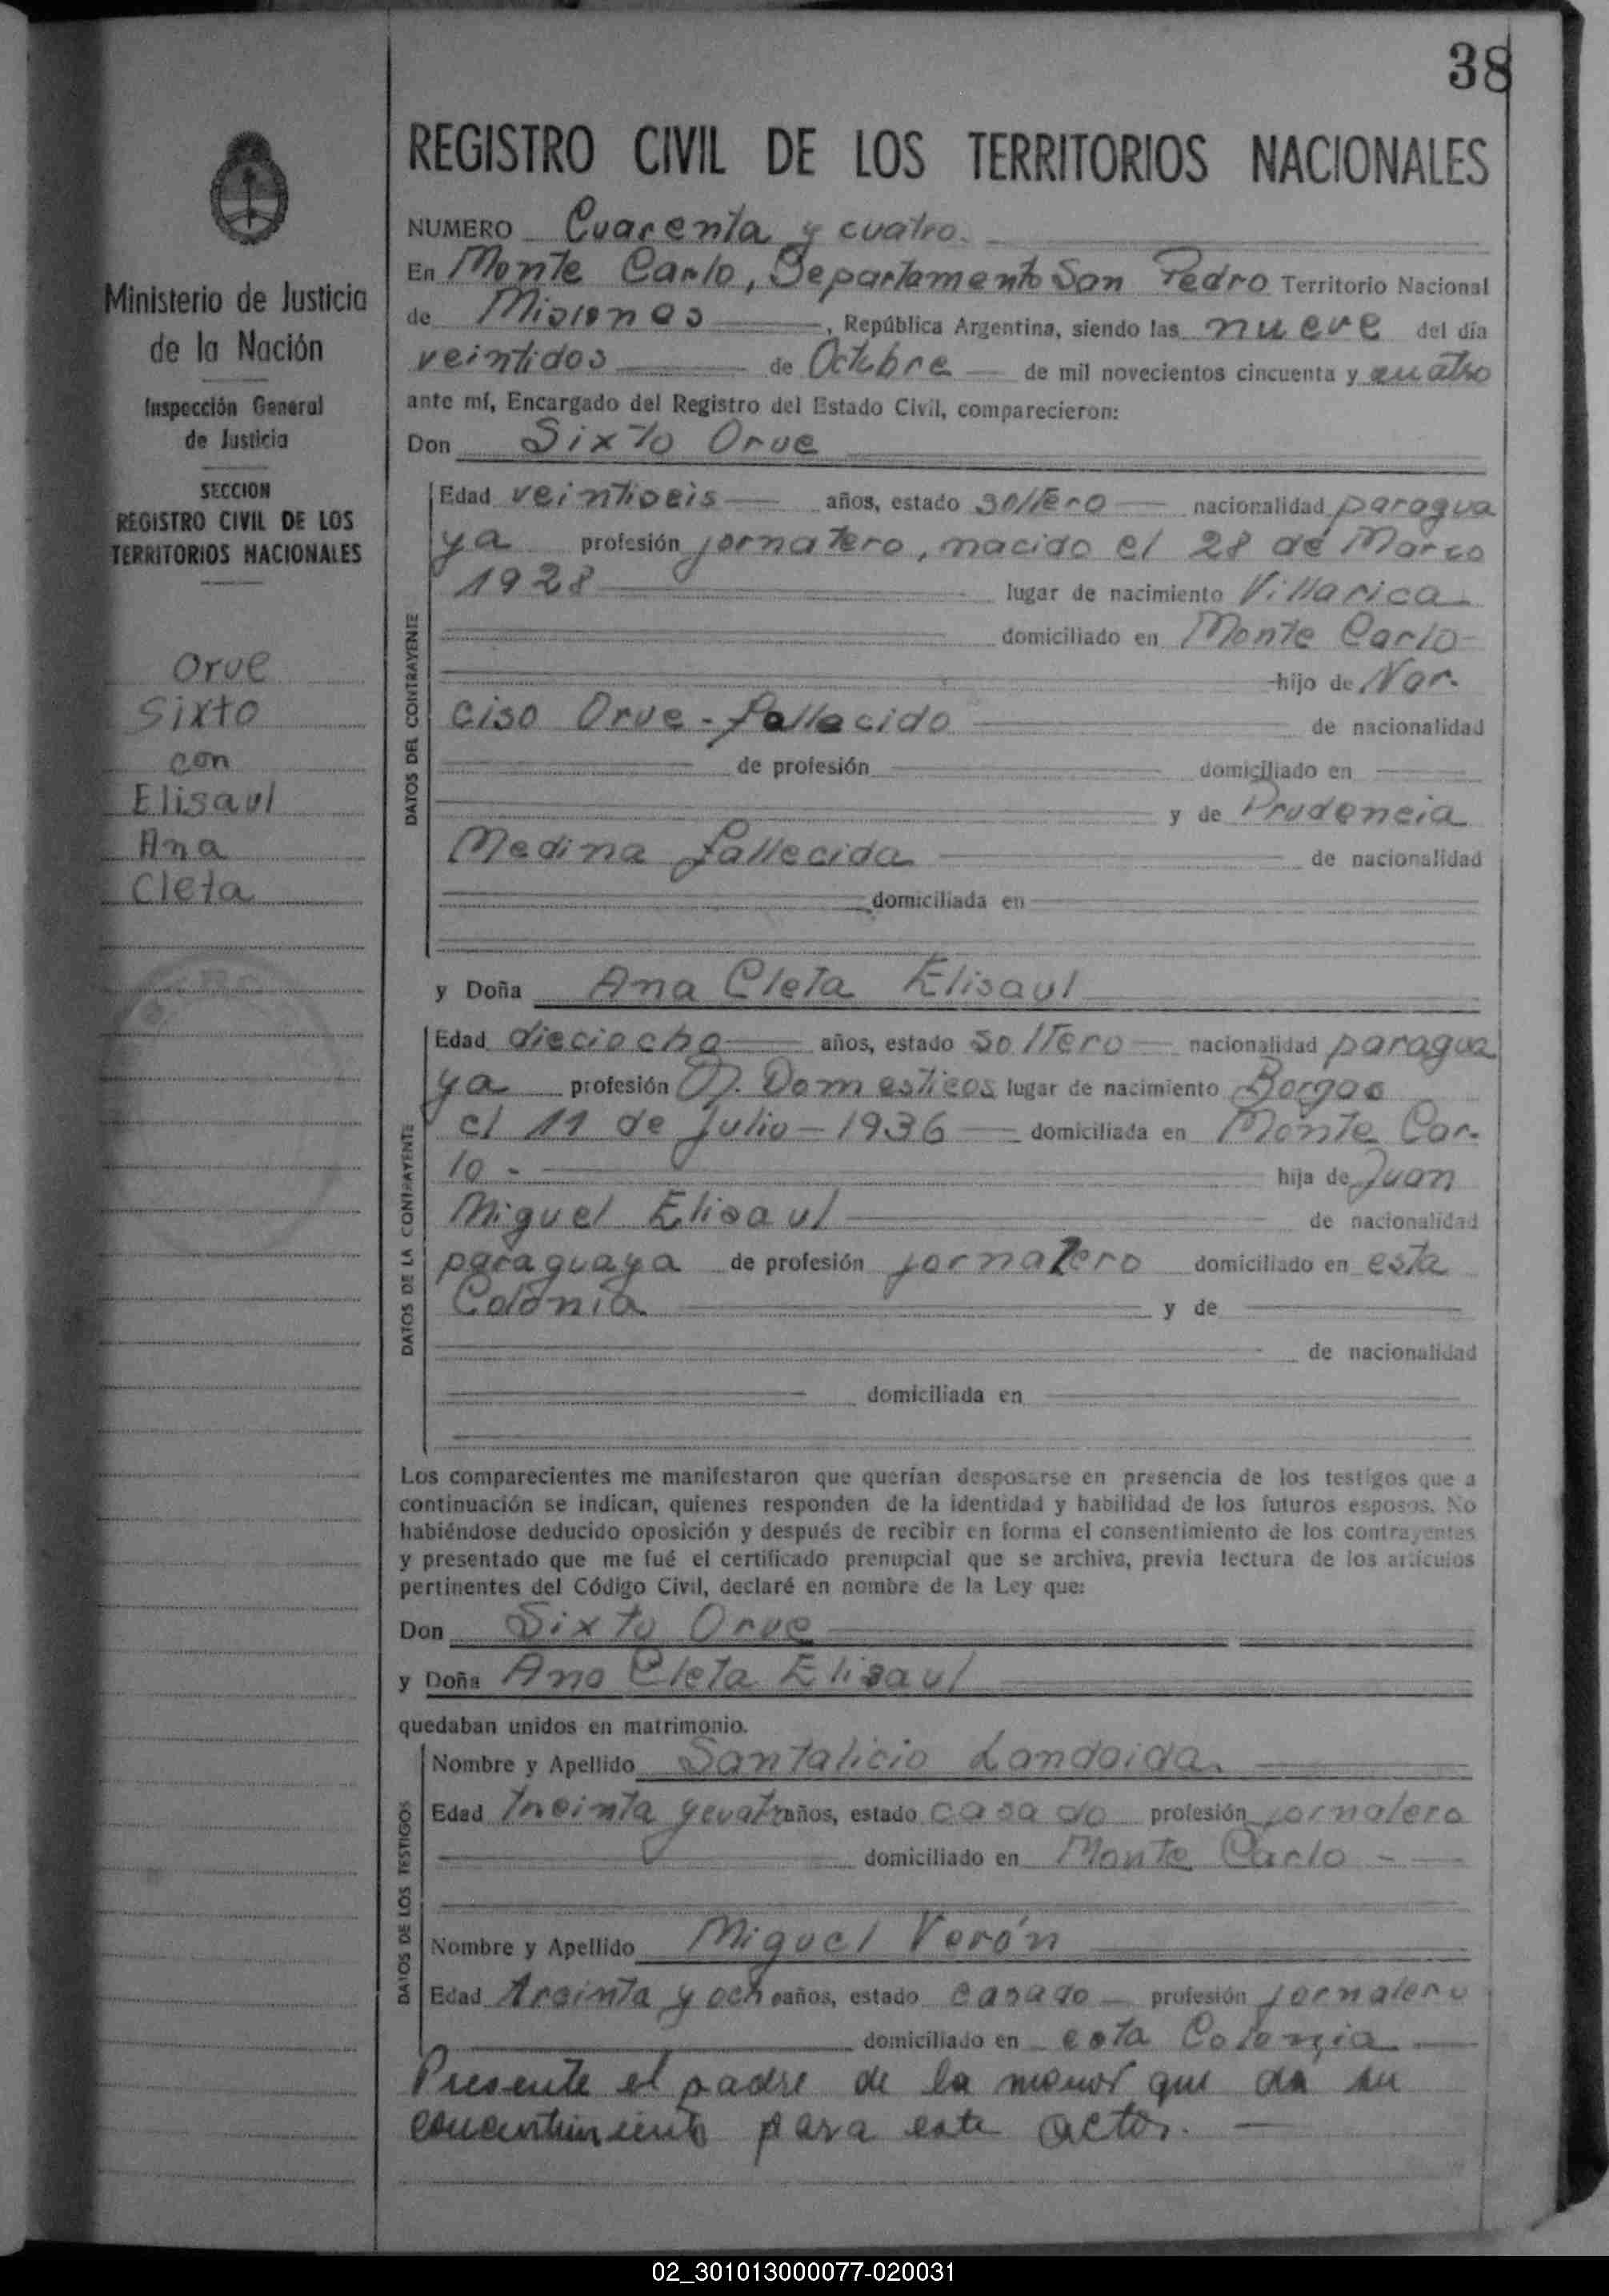 38
REGISTRO CIVIL DE LOS TERRITORIOS NACIONALES
Ministerio de Justicia
de la Nación
Inspección General
de Justicia
SECCION
REGISTRO CIVIL DE LOS
TERRITORIOS NACIONALES
Orue
Sixto
con
Elisaul
Ana
Cleta
NUMERO Cuarenta y cuatro.
En Monte Carlo, Departamento San Pedro Territorio Nacional
de Misiones, República Argentina, siendo las nueve del día
veintidos de Octubre de mil novecientos cincuenta y cuatro
ante mí, Encargado del Registro del Estado Civil, comparecieron:
Don Sixto Orue
DATOS DEL CONTRAYENTE
Edad veintiseis años, estado soltero nacionalidad paragua
ya profesión jornalero, nacido el 28 de Marzo
1928 lugar de nacimiento Villarica
domiciliado en Monte Carlo
hijo de Nar-
ciso Orue - fallecido de nacionalidad
de profesión domiciliado en
y de Prudencia
Medina fallecida de nacionalidad
domiciliada en
y Doña Ana Cleta Elisaul
DATOS DE LA CONTRAYENTE
Edad dieciocho años, estado soltero nacionalidad paragua
ya profesión Q. Domesticos lugar de nacimiento Borgas
el 11 de julio - 1936 domiciliada en Monte Car-
lo - hija de Juan
Miguel Elisaul de nacionalidad
paraguaya de profesión jornalero domiciliado en esta
Colonia y de
de nacionalidad
domiciliada en
Los comparecientes me manifestaron que querían desposarse en presencia de los testigos que a
continuación se indican, quienes responden de la identidad y habilidad de los futuros esposos. No
habiéndose deducido oposición y después de recibir en forma el consentimiento de los contrayentes
y presentado que me fué el certificado prenupcial que se archiva, previa lectura de los artículos
pertinentes del Código Civil, declaré en nombre de la Ley que:
Don Sixto Orue
y Doña Ana Cleta Elisaul
quedaban unidos en matrimonio.
DATOS DE LOS TESTIGOS
Nombre y Apellido Santalicio Landaida.
Edad treinta y cuatro años, estado casado profesión jornalero
domiciliado en Monte Carlo -
Nombre y Apellido Miguel Verón
Edad treinta y ocho años, estado casado profesión jornalero
domiciliado en esta Colonia
Presente el padre de la menor que da su
concentimiento para este acto.
02_301013000077-020031